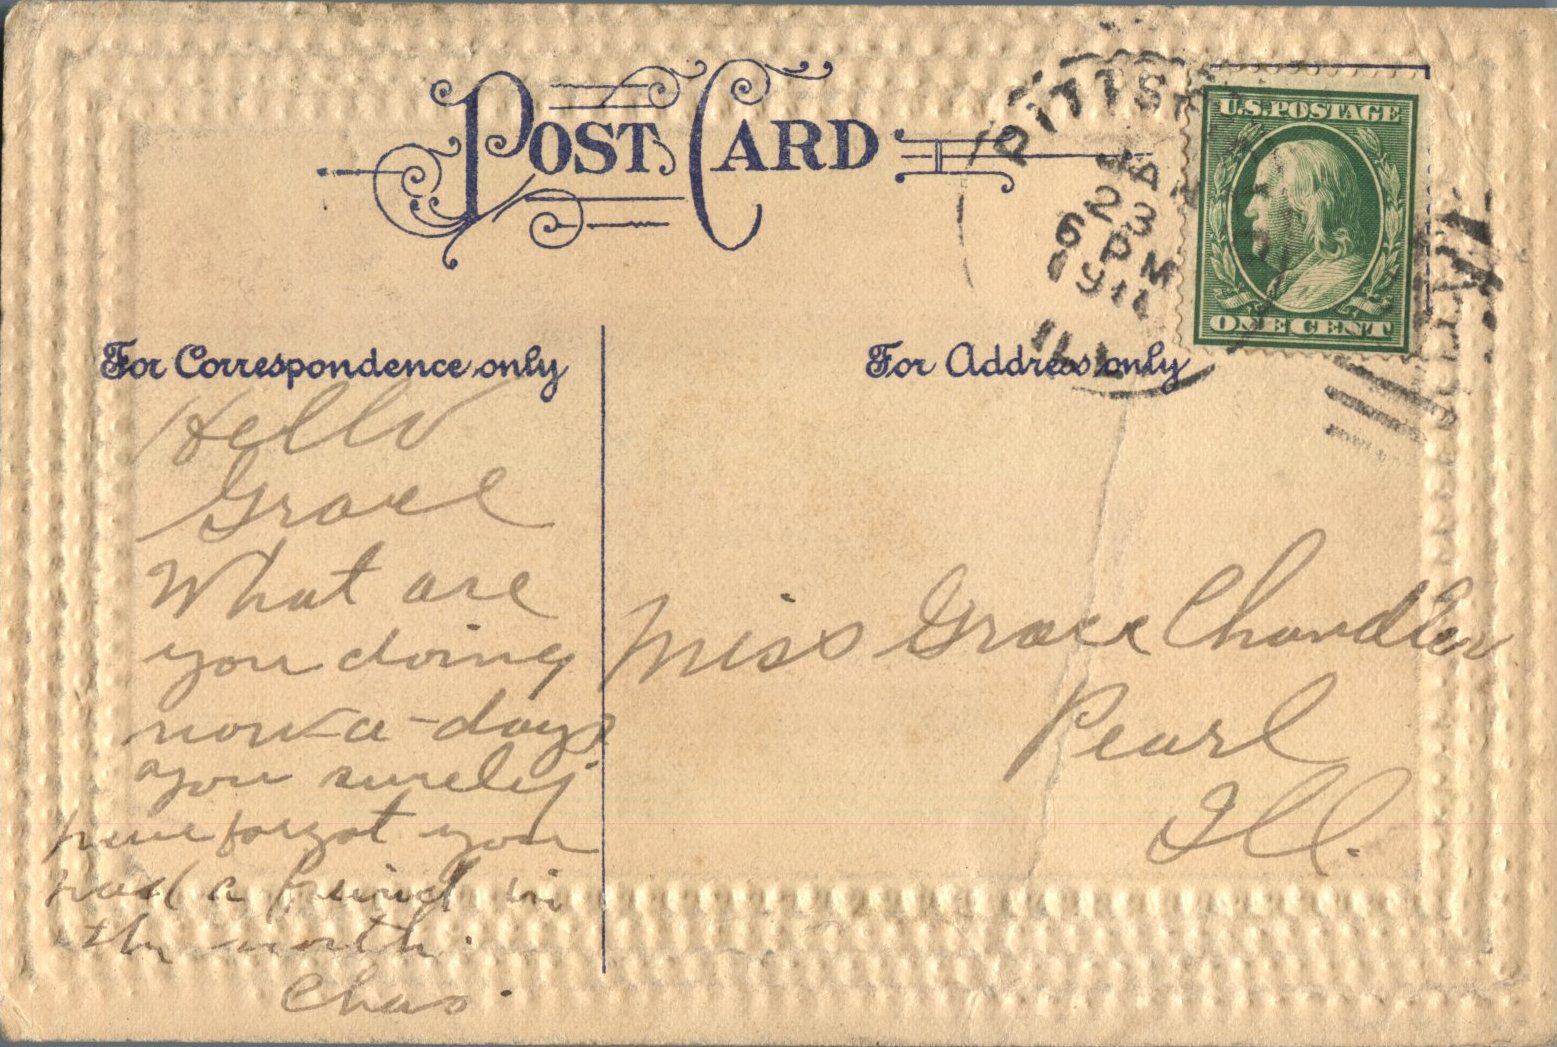 POST CARD
PITTS
JAN
23
6 PM
1911
ILL
U.S. POSTAGE
ONE CENT
For Correspondence only
For Address only
Hello
Grace
What are
you doing
now-a-days
you surely
have forgot you
had a freind in
the north.
Chas.
Miss Grace Chandler
Pearl
Ill.